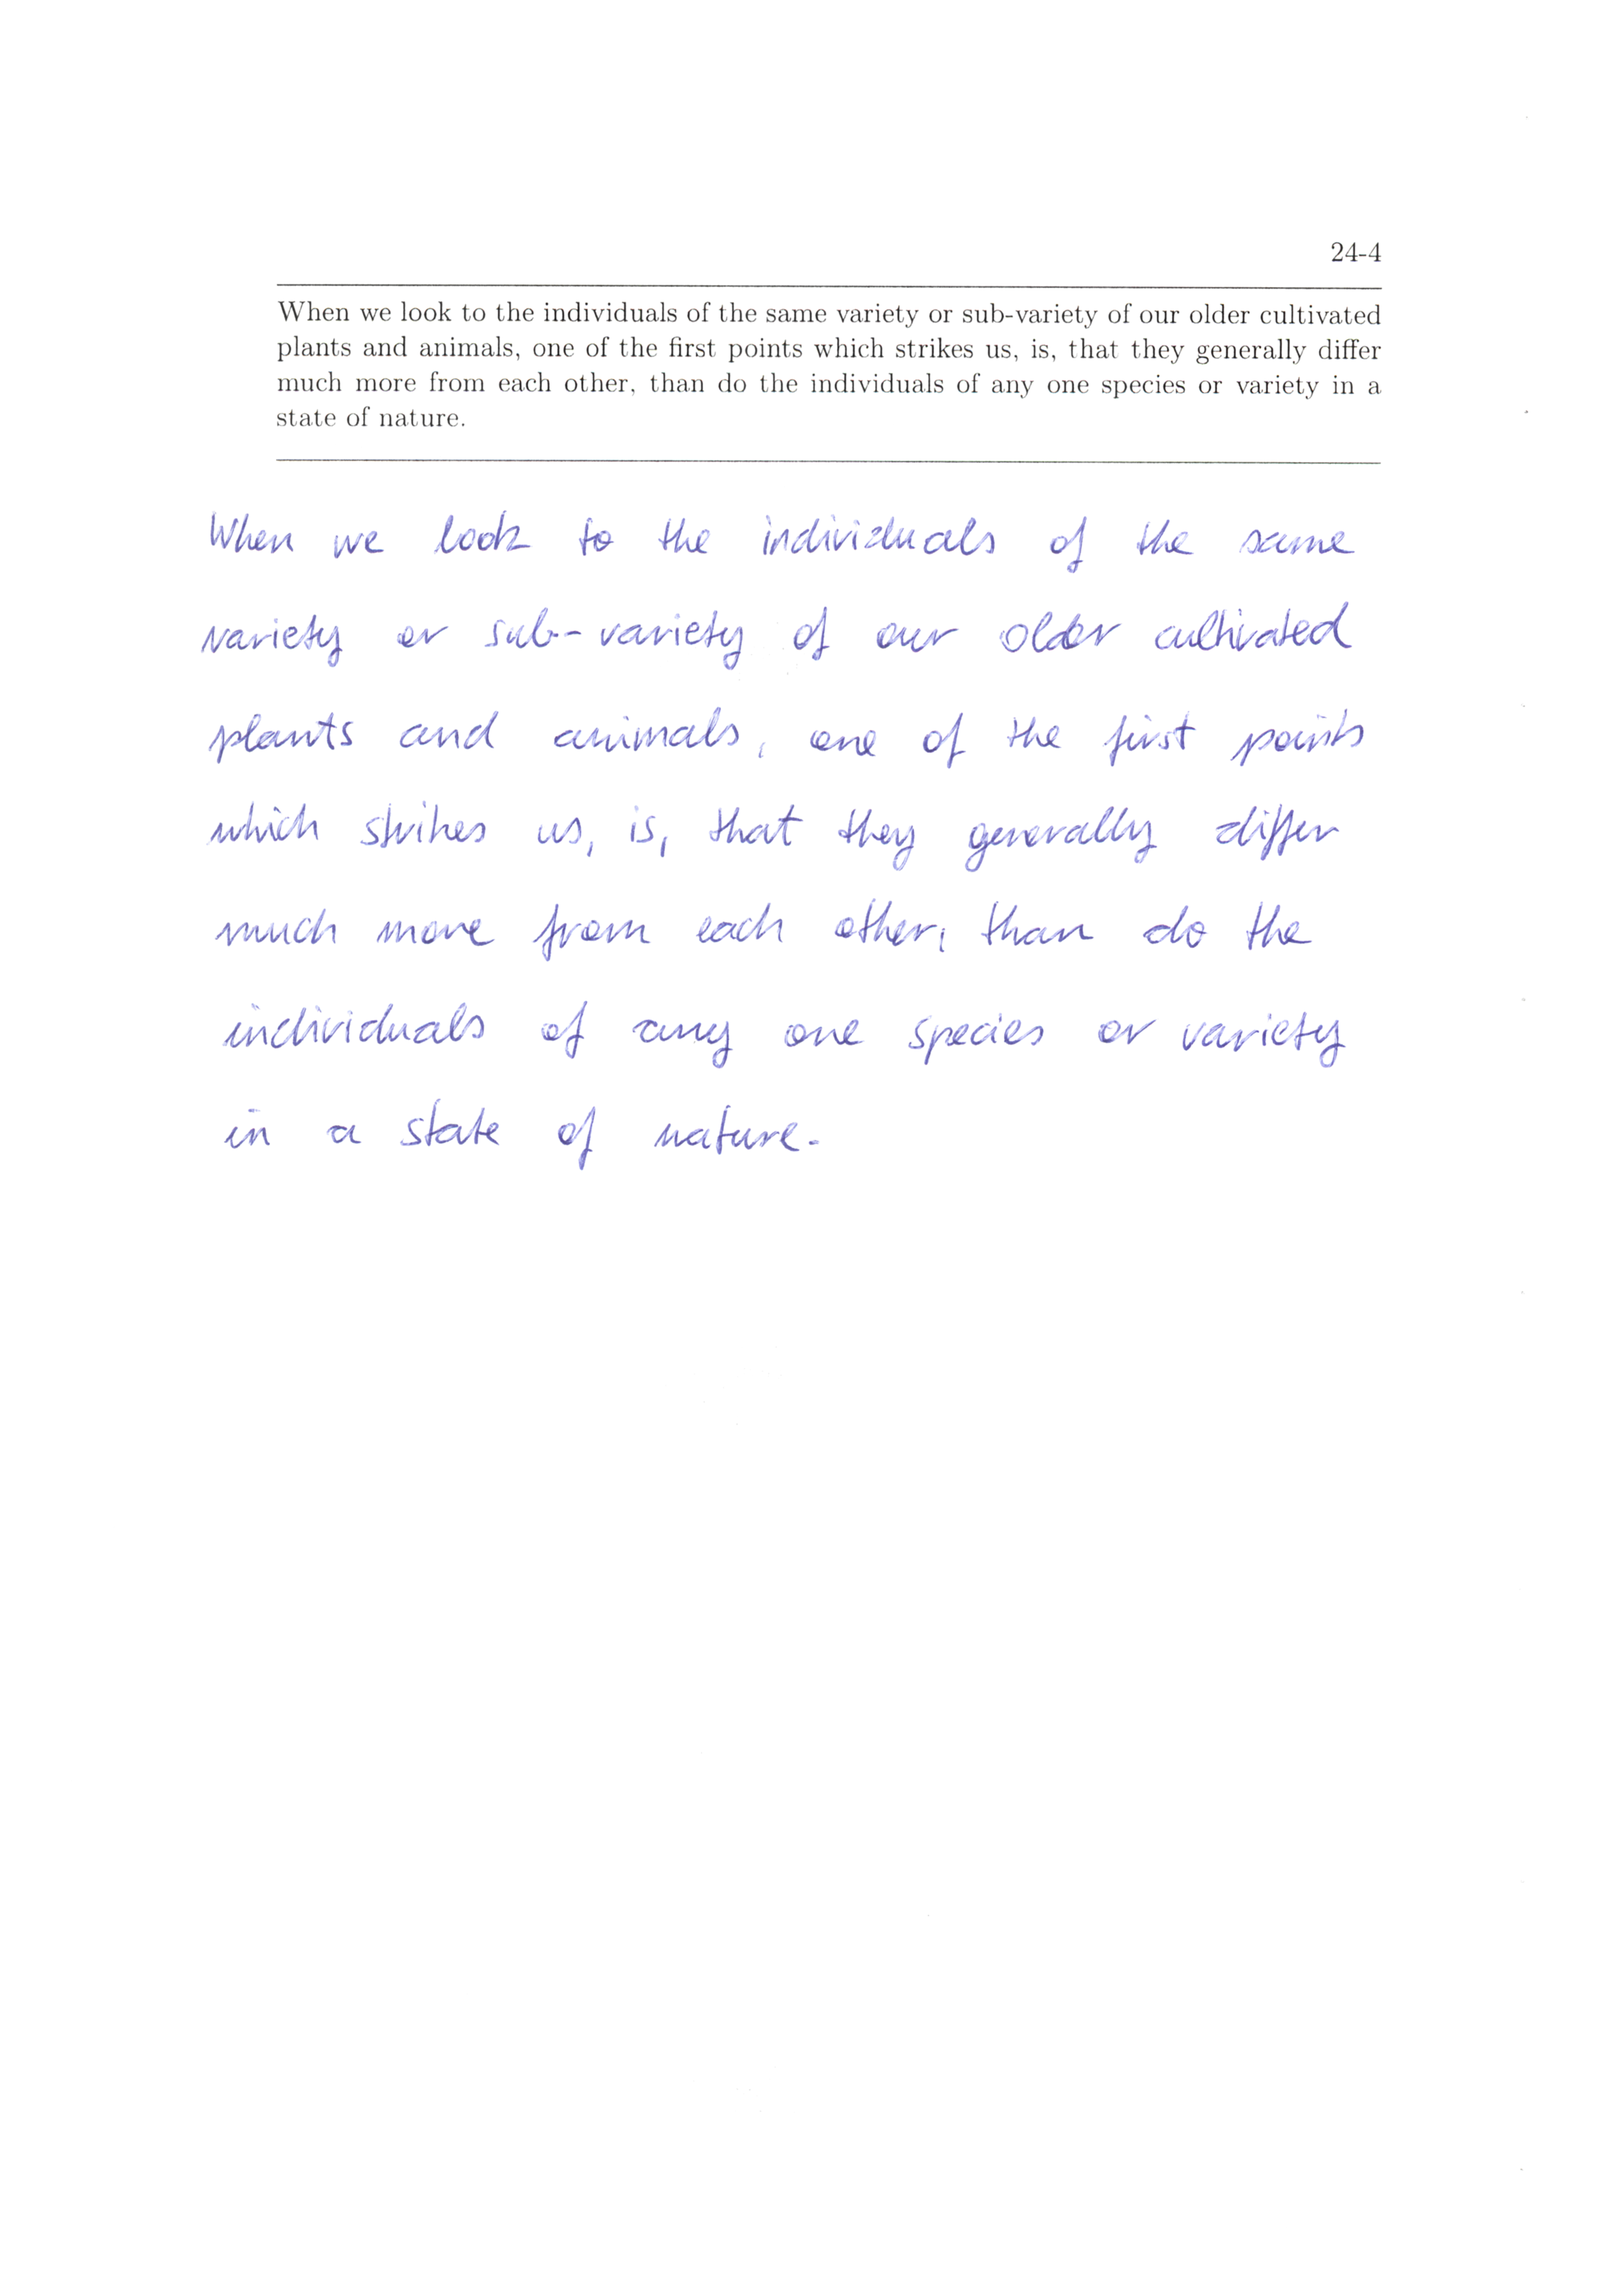 24-4
When we look to the individuals of the same variety or sub-variety of our older cultivated
plants and animals, one of the first points which strikes us, is, that they generally differ
much more from each other, than do the individuals of any one species or variety in a
state of nature.
When we look to the individuals of the same
variety or sub-variety of our older cultivated
plants and animals, one of the first points
which strikes us, is, that they generally differ
much more from each other, than do the
individuals of any one species or variety
in a state of nature.